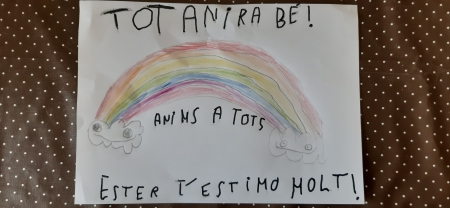 TOT ANIRA BÉ!
ANIMS A TOTS
ESTER T'ESTIMO MOLT!